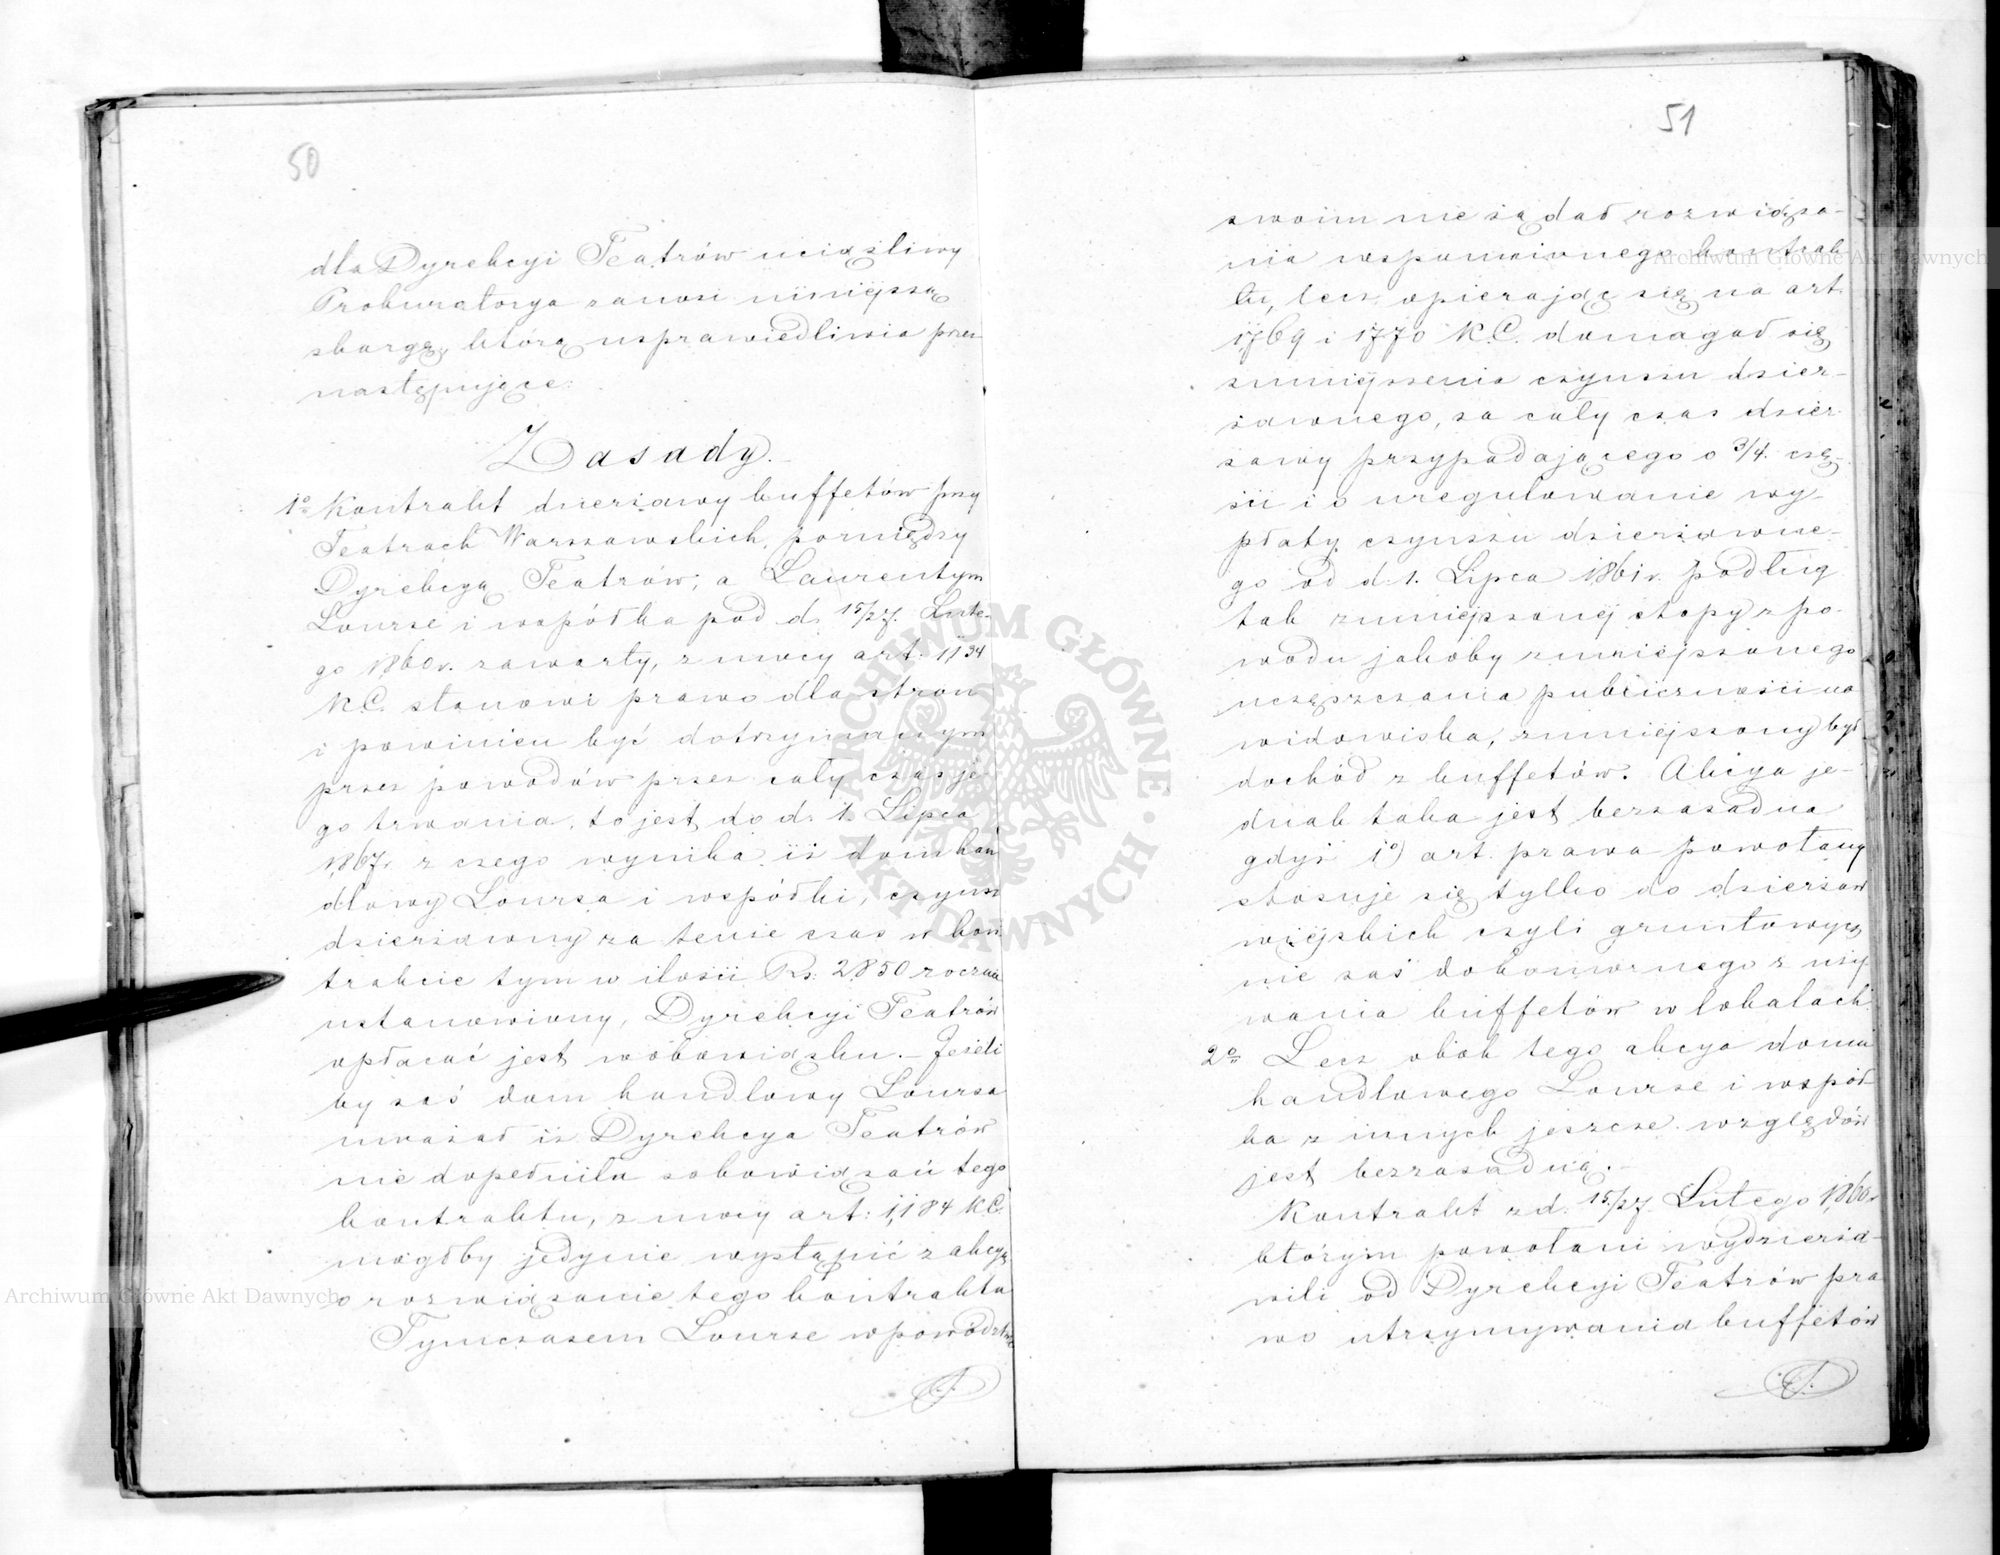 50
dla Dyrekcyi Teatrów uciążliwy
Prokuratorya zanosi niniejszą
skargę, którą usprawiedliwia przez
następujące:
Zasady.
1º Kontrakt dzierżawy buffetów przy
Teatrach Warszawskich, pomiędzy
Dyrekcyą Teatrów, a Laurentym
Lourse i wspólka pod d. 15/27. Lute-
go 1860 r. zawarty, z mocy art. 1134
K.C. stanowi prawo dla stron
i powinien być dotrzymanym
przez powodów przez cały czas je-
go trwania, to jest, do d. 1. Lipca
1867 r z czego wynika iż dom han
dlowy Loursa i wspólki, czynsz
dzierżawny za tenże czas w kon
trakcie tym w ilości Rs. 2850 rocznie
ustanowiony, Dyrekcyi Teatrów
opłacać jest w obowiązku. – Jeżeli
by zaś dom handlowy Loursa
uważał iż Dyrekcya Teatrów
nie dopełniła zobowiązań tego
kontraktu, z mocy art: 1184 K.C.
mógłby jedynie wystąpić z akcyą
o rozwiązanie tego kontraktu
Tymczasem Lourse w powództwie
51
swoim nie żądał rozwiąza-
nia wspomnionego kontrak
tu, lecz opierając się na art.
1769 i 1770 K.C. domagał się
zmniejszenia czynszu dzier-
żawnego, za cały czas dzier-
żawy przypadającego o 3/4. czę-
ści i o uregulowanie wy-
płaty czynszu dzierżawne-
go od d. 1. Lipca 1861 r. podług
tak zmniejszonej stopy z po-
wodu jakoby zmniejszonego
uczęszczania publiczności na
widowiska, zmniejszony był
dochód z buffetów. Akcya je-
dnak taka jest bezzasadna
gdyż 1º) art. prawa powołany
stosuje się tylko do dzierżaw
wiejskich czyli gruntowych
nie zaś dokonornego z uży-
wania buffetów w lokalach.
2º Lecz obok tego akcya domu
handlowego Lourse i wspól-
ka z innych jeszcze względów
jest bezzasadną. –
Kontrakt z d. 15/27 Lutego 1860 r
którym powołani wydzierża-
wili od Dyrekcyi Teatrów pra
wo utrzymywania buffetów
Archiwum Główne Akt Dawnych
Archiwum Główne Akt Dawnych
ARCHIWUM GŁÓWNE AKT DAWNYCH